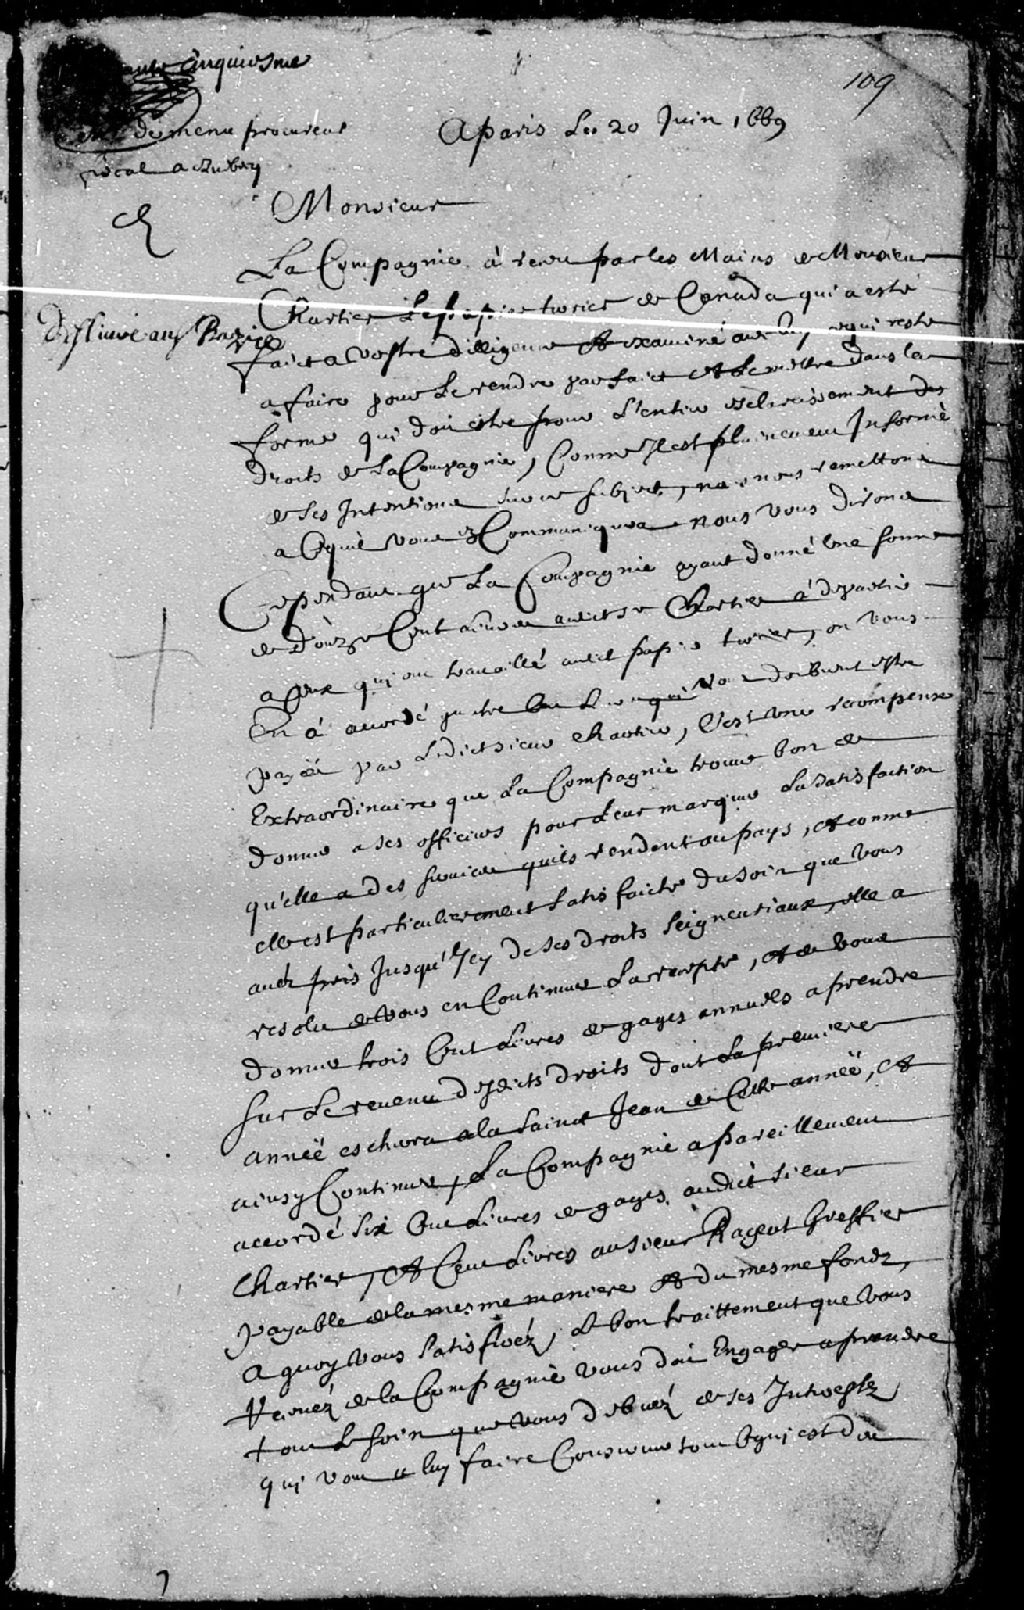 cinquiesme
109
de menu procureur
fiscal a Quebecq
A Paris Le 20 Juin 1669
Monsieur
La Compagnie a receu par les Mains de Monsieur
Chartier Le papier terrier de Canada qui a esté
faict a vostre dilligence Et examiné avec luy ce qui reste
a faire pour Le rendre parfaict et Le mettre dans la
forme qui doit estre pour L'entier esclaircissement des
droits de La Compagnie, Comme Il est plainement Informé
de ses Intentions sur ce subject, nous nous remettons
a Ce qu'il vous Communiquera nous vous dirons
Cependant que La Compagnie ayant donné Une somme
de douze Cent Livres audit sr Chartier a departir
a Ceux qui ont travaillé audit papier terrier, on vous
En a accordé quatre Cent L. qui vous doibvent estre
payée par Ledict sieur Chartier, C'est une recompense
Extraordinaire que La Compagnie trouve bon de
donner a ses officiers pour Leur marquer La satisfaction
qu'elle a des services qu'ils rendent au pays, et comme
elle est particulierement satisfaicte du soin que vous
avez pris Jusqu'Icy de ses droits seigneuriaux, elle a
resolu de vous en Continuer La recepte, et de vous
donner trois Cent Livres de gages annuels a prendre
sur Le revenu desdicts droits dont La premiere
année eschera a la Saint Jean de Cette année, et
ainsy Continuer, La Compagnie a pareillement
accordé six Cent Livres de gages audict sieur
Chartier, et Cent Livres au sieur Rageot Greffier
payable de la mesme maniere et du mesme fondz,
a quoy vous satisferéz, Le bon traittement que vous
recevéz de la Compagnie vous doit Engager a prendre
tout Le soin que vous debvéz de ses Interestz
qui vont a luy faire Conserver tout Ce qui est deu